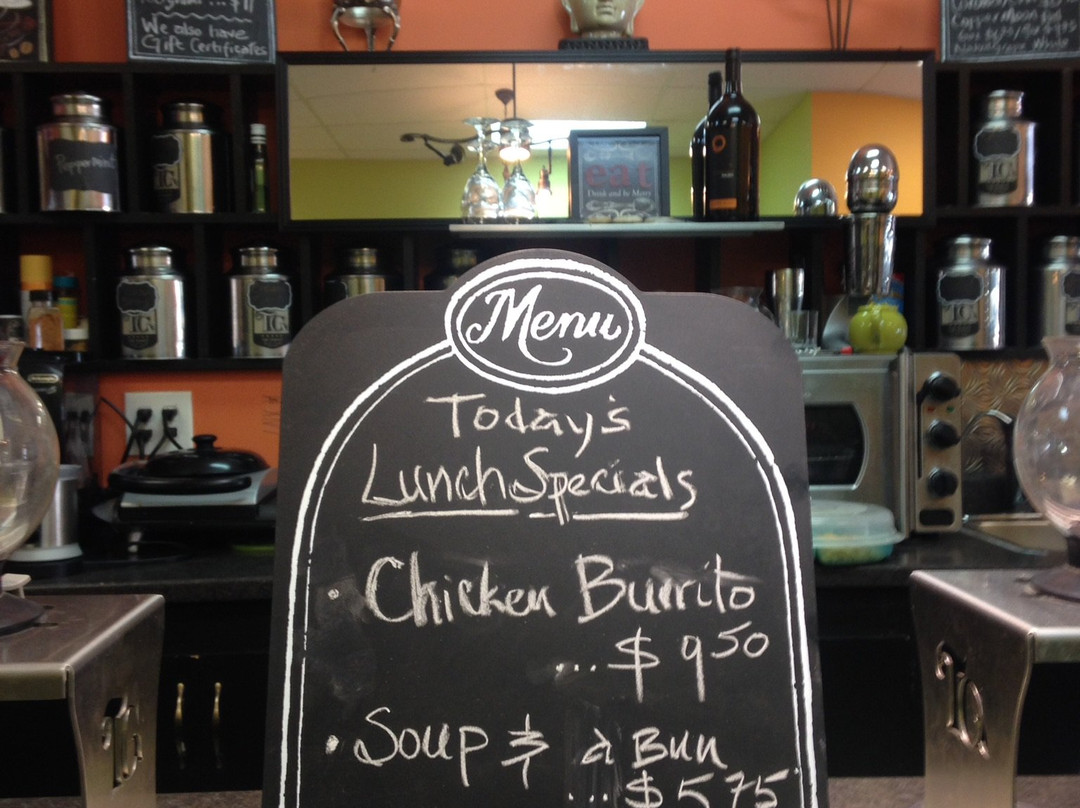 We also have
Gift Certificates
Peppermint
eat
Drink and be Merry
Menu
Today's
Lunch Specials
• Chicken Burrito
... $ 9 50
• Soup & a Bun
... $ 5 75